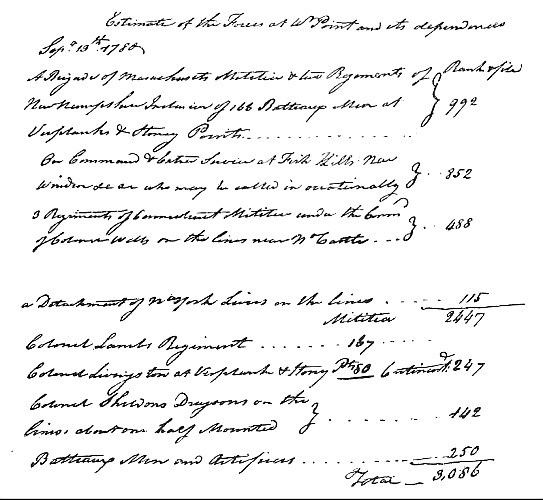 Estimate of the Forces at Wt Point and its dependences
Sepr 13th 1780
A Brigade of Massachusets Militia & two Regiments of Rank & file
New Hampshire Inclusive of 166 Batteaux Men at 992
Verplanks & Stoney Points
On Command & Extra Service at Fish Kills New
Windsor &c &c who may be called in occationally 852
3 Regiments of Connecticut Militia under the Comd
of Colonel Wells on the lines near N Castle 488
a Detachment of N York Levies on the lines 115
Militia 2447
Colonel Lambs Regiment 167
Colonel Livingston at Verplank & Stoney Pts 80 Continent: 247
Colonel Sheldons Dragoons on the
lines, about one half Mounted 142
Batteaux Men and Artificers 250
Total 3,086